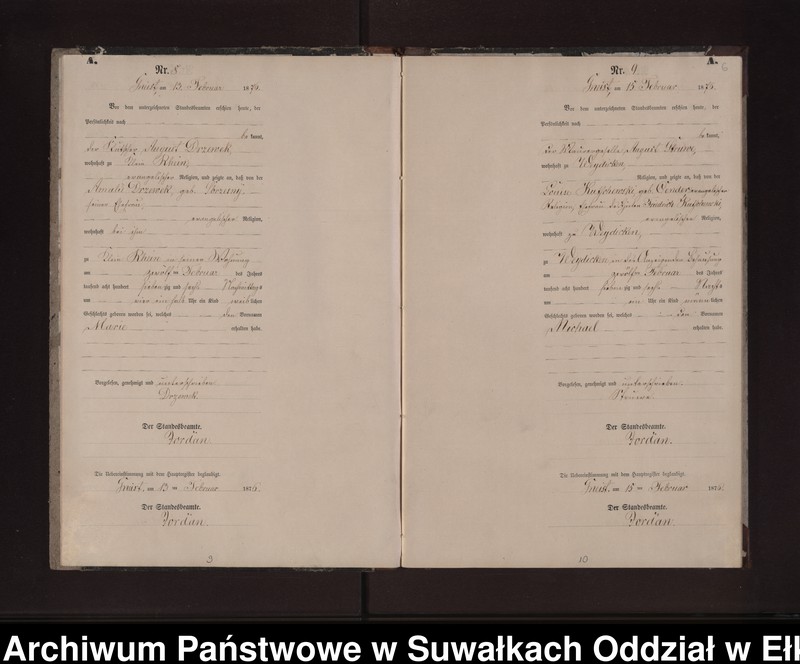 A.
Nr. 8
am 13 Februar 1876.
Vor dem unterzeichneten Standesbeamten erschien heute, der
Persönlichkeit nach
be kannt,
der August Drzewek
wohnhaft zu Klein Rhein,
evangelischer Religion, und zeigte an, daß von der
Amalie Drzewek, geb.
seiner Ehefrau
evangelischer Religion,
wohnhaft bei ihm
zu Klein Rhein in seiner Wohnung
am zwölften Februar des Jahres
tausend acht hundert siebenzig und sechs Nachmittags
um vier ein halb Uhr ein Kind weiblichen
Geschlechts geboren worden sei, welches den Vornamen
Marie erhalten habe.
Vorgelesen, genehmigt und unterschrieben
Drzewek
Der Standesbeamte.
Jordan.
Die Uebereinstimmung mit dem Hauptregister beglaubigt.
am 13 ten Februar 1876.
Der Standesbeamte.
Jordan.
9
A.
6
Nr. 9.
am 15 Februar 1876.
Vor dem unterzeichneten Standesbeamten erschien heute, der
Persönlichkeit nach
be kannt,
der August Struwe,
wohnhaft zu Weydicken,
Religion, und zeigte an, daß von der
geb. evangelischen
Religion, Ehefrau
evangelischer Religion,
wohnhaft zu Weydicken,
zu Weydicken in des Anzeigenden Behausung
am zwölften Februar des Jahres
tausend acht hundert siebenzig und sechs Nachts
um ein Uhr ein Kind männlichen
Geschlechts geboren worden sei, welches den Vornamen
Michael erhalten habe.
Vorgelesen, genehmigt und unterschrieben.
Struwe.
Der Standesbeamte.
Jordan.
Die Uebereinstimmung mit dem Hauptregister beglaubigt.
am 15 ten Februar 1876.
Der Standesbeamte.
Jordan.
10
Archiwum Państwowe w Suwałkach Oddział w Ełk